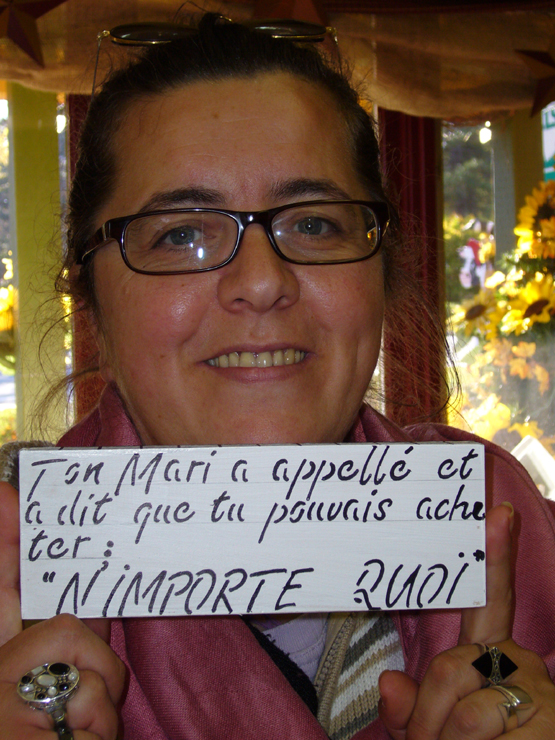 Ton Mari a appellé et
a dit que tu pouvais ache
ter :
"N'IMPORTE QUOI"